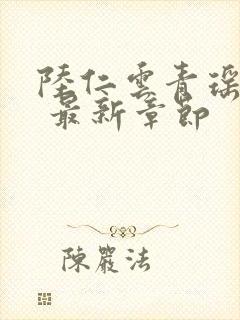 陸仁雲青瑶
最新章節
陳嚴法